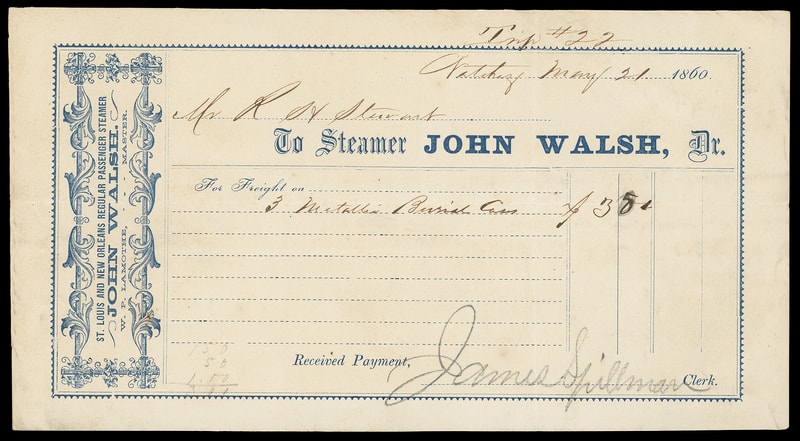 Trip #22
Natchez May 21 1860.
Mr R H Stewart
To Steamer JOHN WALSH, Dr.
For Freight on
3 Metallic Burial Cases
Received Payment,
James Spillman Clerk.
ST. LOUIS AND NEW ORLEANS REGULAR PASSENGER STEAMER
JOHN WALSH.
W. P. LAMOTHE, - - MASTER.